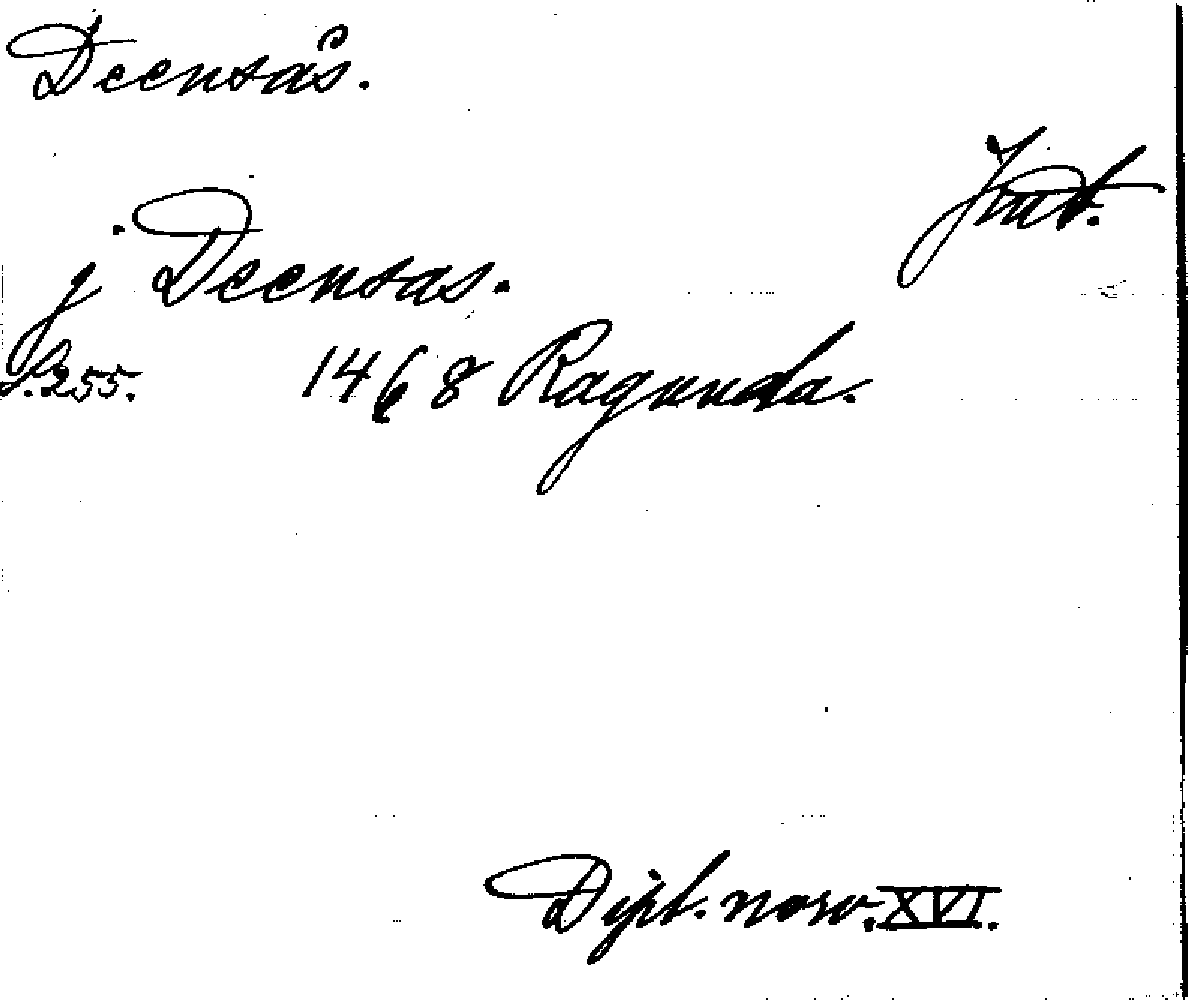 Deensås.
Jmt.
j Deensas.
S. 255. 1468 Ragunda.
Dipl. norv. XVI.